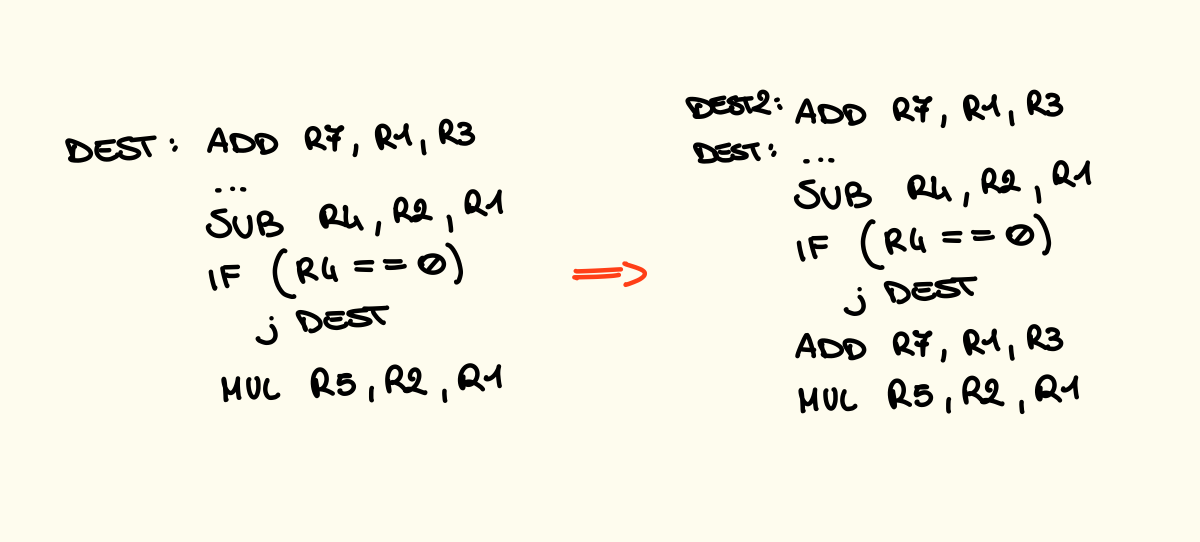 DEST: ADD R7, R1, R3
...
SUB R4, R2, R1
IF (R4 == 0)
j DEST
MUL R5, R2, R1
DEST2: ADD R7, R1, R3
DEST: ...
SUB R4, R2, R1
IF (R4 == 0)
j DEST
ADD R7, R1, R3
MUL R5, R2, R1